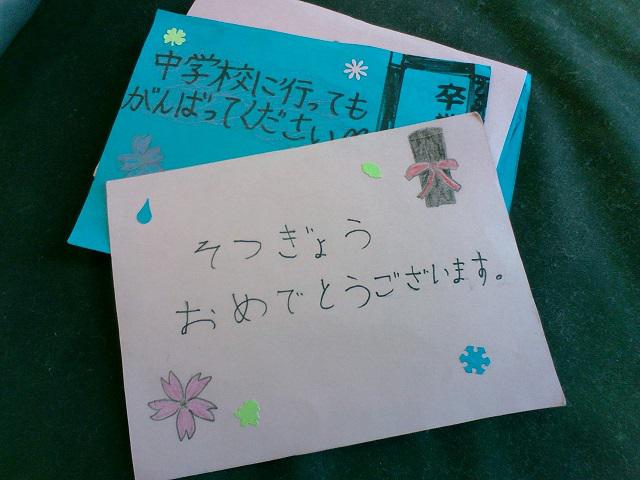 中学校に行っても
がんばってください
卒業
そつぎょう
おめでとうございます。